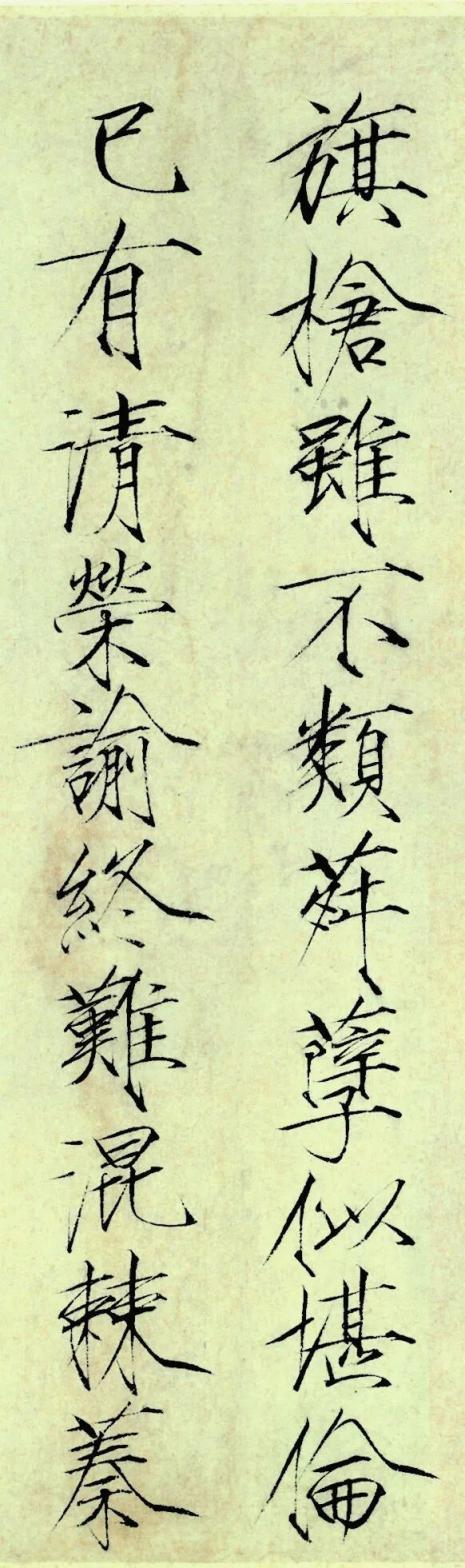 旗槍雖不類荈孽似堪倫
已有清榮諭終難混棘蓁